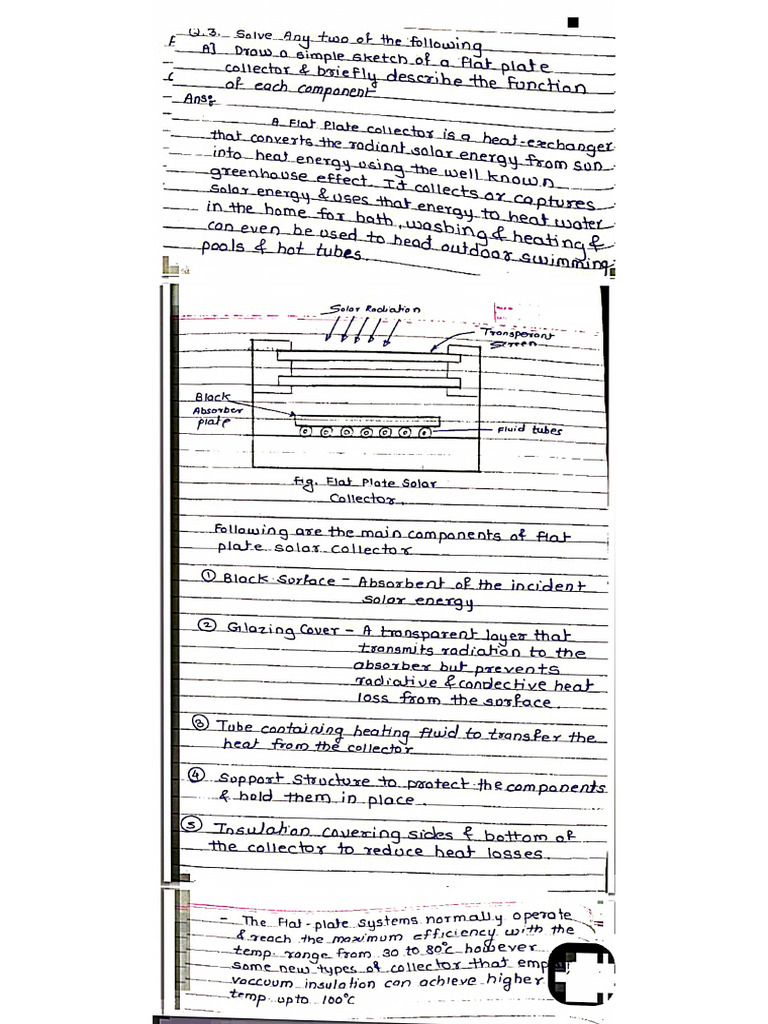 Q.3. Solve Any two of the following
A] Draw a simple sketch of a flat plate
collector & briefly describe the function
of each component
Ans:
A Flat Plate collector is a heat-exchanger
that converts the radiant solar energy from sun
into heat energy using the well known
greenhouse effect. It collects or captures
solar energy & uses that energy to heat water
in the home for bath, washing & heating &
can even be used to head outdoor swimming
pools & hot tubes.
Solar Radiation
Transparant
Black
Absorber
plate
Fluid tubes
Fig. Flat Plate Solar
Collector.
Following are the main components of flat
plate solar collector
① Black Surface - Absorbent of the incident
solar energy
② Glazing Cover - A transparent layer that
transmits radiation to the
absorber but prevents
radiative & condective heat
loss from the surface.
③ Tube containing heating fluid to transfer the
heat from the collector
④ Support Structure to protect the components
& hold them in place.
⑤ Insulation covering sides & bottom of
the collector to reduce heat losses.
- The Flat-plate systems normally operate
& reach the maximum efficiency with the
temp. range from 30 to 80°c however
some new types of collector that
vaccuum insulation can achieve higher
temp. upto 100°C